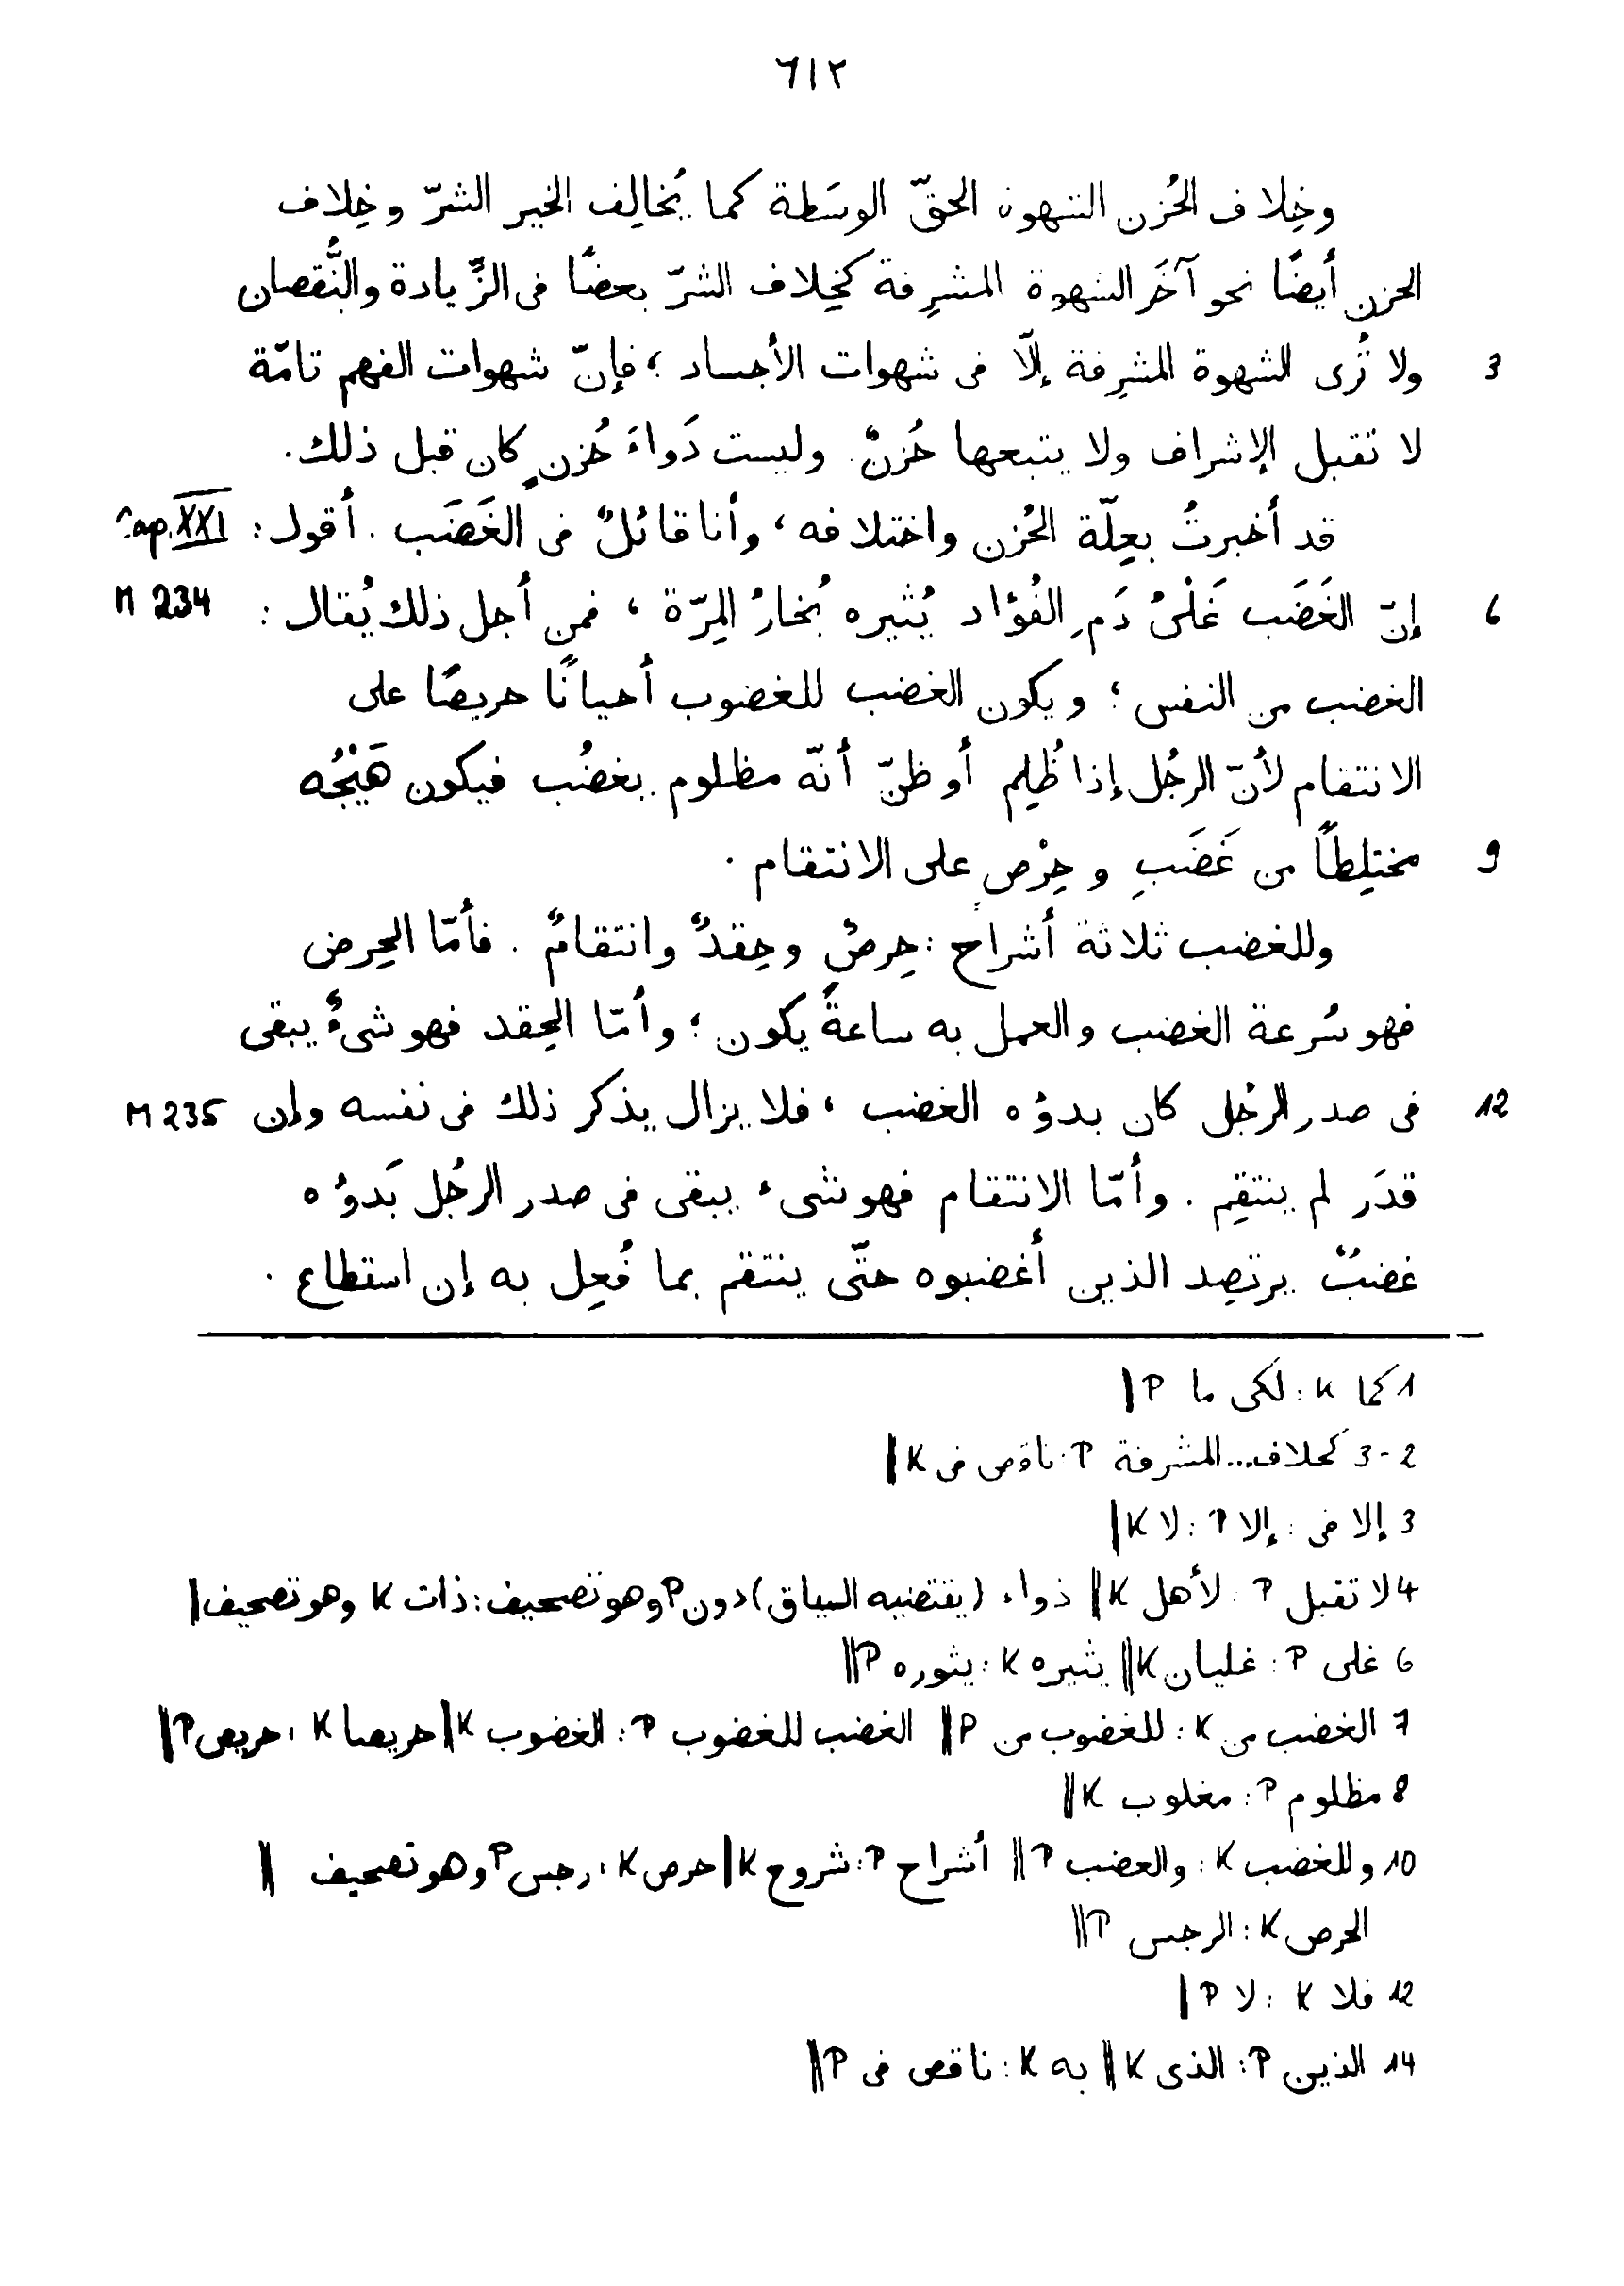 ٦١٢
وخِلاف الحُزن الشهوة الحقّ الوسَطة كما يُخالِف الخير الشرّ وخِلاف
الحزن أيضًا نحو آخَر الشهوة المشرِفة كخِلاف الشرّ بعضًا فى الزِّيادة والنُّقصان
3 ولا تُرى الشهوة المشرِفة إلّا فى شهوات الأجساد ؛ فإنّ شهوات الفهم تامّة
لا تقبل الإشراف ولا يتبعها حُزنٌ وليست دَواءَ حُزنٍ كان قبل ذلك.
قد أخبرتُ بعِلّة الحُزن واختلافه ، وأنا قائلٌ فى الغَضَب . أقول : Cap. XXI
6 إنّ الغَضَب غَلْىُ دَمِ الفُؤاد يُثيره بُخارُ المِرّة ، فمن أجل ذلك يُقال : M 234
الغضب من النفس ؛ ويكون الغضب للغضوب أحيانًا حريصًا على
الانتقام لأنّ الرجُل إذا ظُلِم أو ظنّ أنّه مظلوم يغضُب فيكون هَيْجُه
9 مختلِطًا من غَضَبٍ وحِرْصٍ على الانتقام .
وللغضب ثلاثة أشراح : حِرصٌ وحِقدٌ وانتقامٌ . فأمّا الحِرض
فهو سُرعة الغضب والعمل به ساعةَ يكون ؛ وأمّا الحِقد فهو شىءٌ يبقى
12 فى صدر الرجُل كان بدؤه الغضب ، فلا يزال يذكر ذلك فى نفسه وإن M 235
قدَر لم ينتقِم . وأمّا الانتقام فهو شىء يبقى فى صدر الرجُل بَدوُه
غضبٌ يرتصِد الذين أغضبوه حتّى ينتقم بما فُعِل به إن استطاع .
1 كما K : لكى ما P |
2-3 كخلاف... المشرفة P : ناقص فى K |
3 إلا فى : إلا P : لا K |
4 لا تقبل P : لأهل K || ذواء (يقتضيه السياق) دون P وهو تصحيف : ذات K وهو تصحيف |
6 غلى P : غليان K || يثيره K : يثوره P ||
7 الغضب من K : للغضوب من P || الغضب للغضوب P : الغضوب K | حريصا K : حريص P ||
8 مظلوم P : مغلوب K ||
10 وللغضب K : والعضب P || أشراح P : شروح K | حرص K : رجس P وهو تصحيف ||
الحرص K : الرجس P ||
12 فلا K : لا P |
14 الذين P : الذى K || به K : ناقص فى P ||